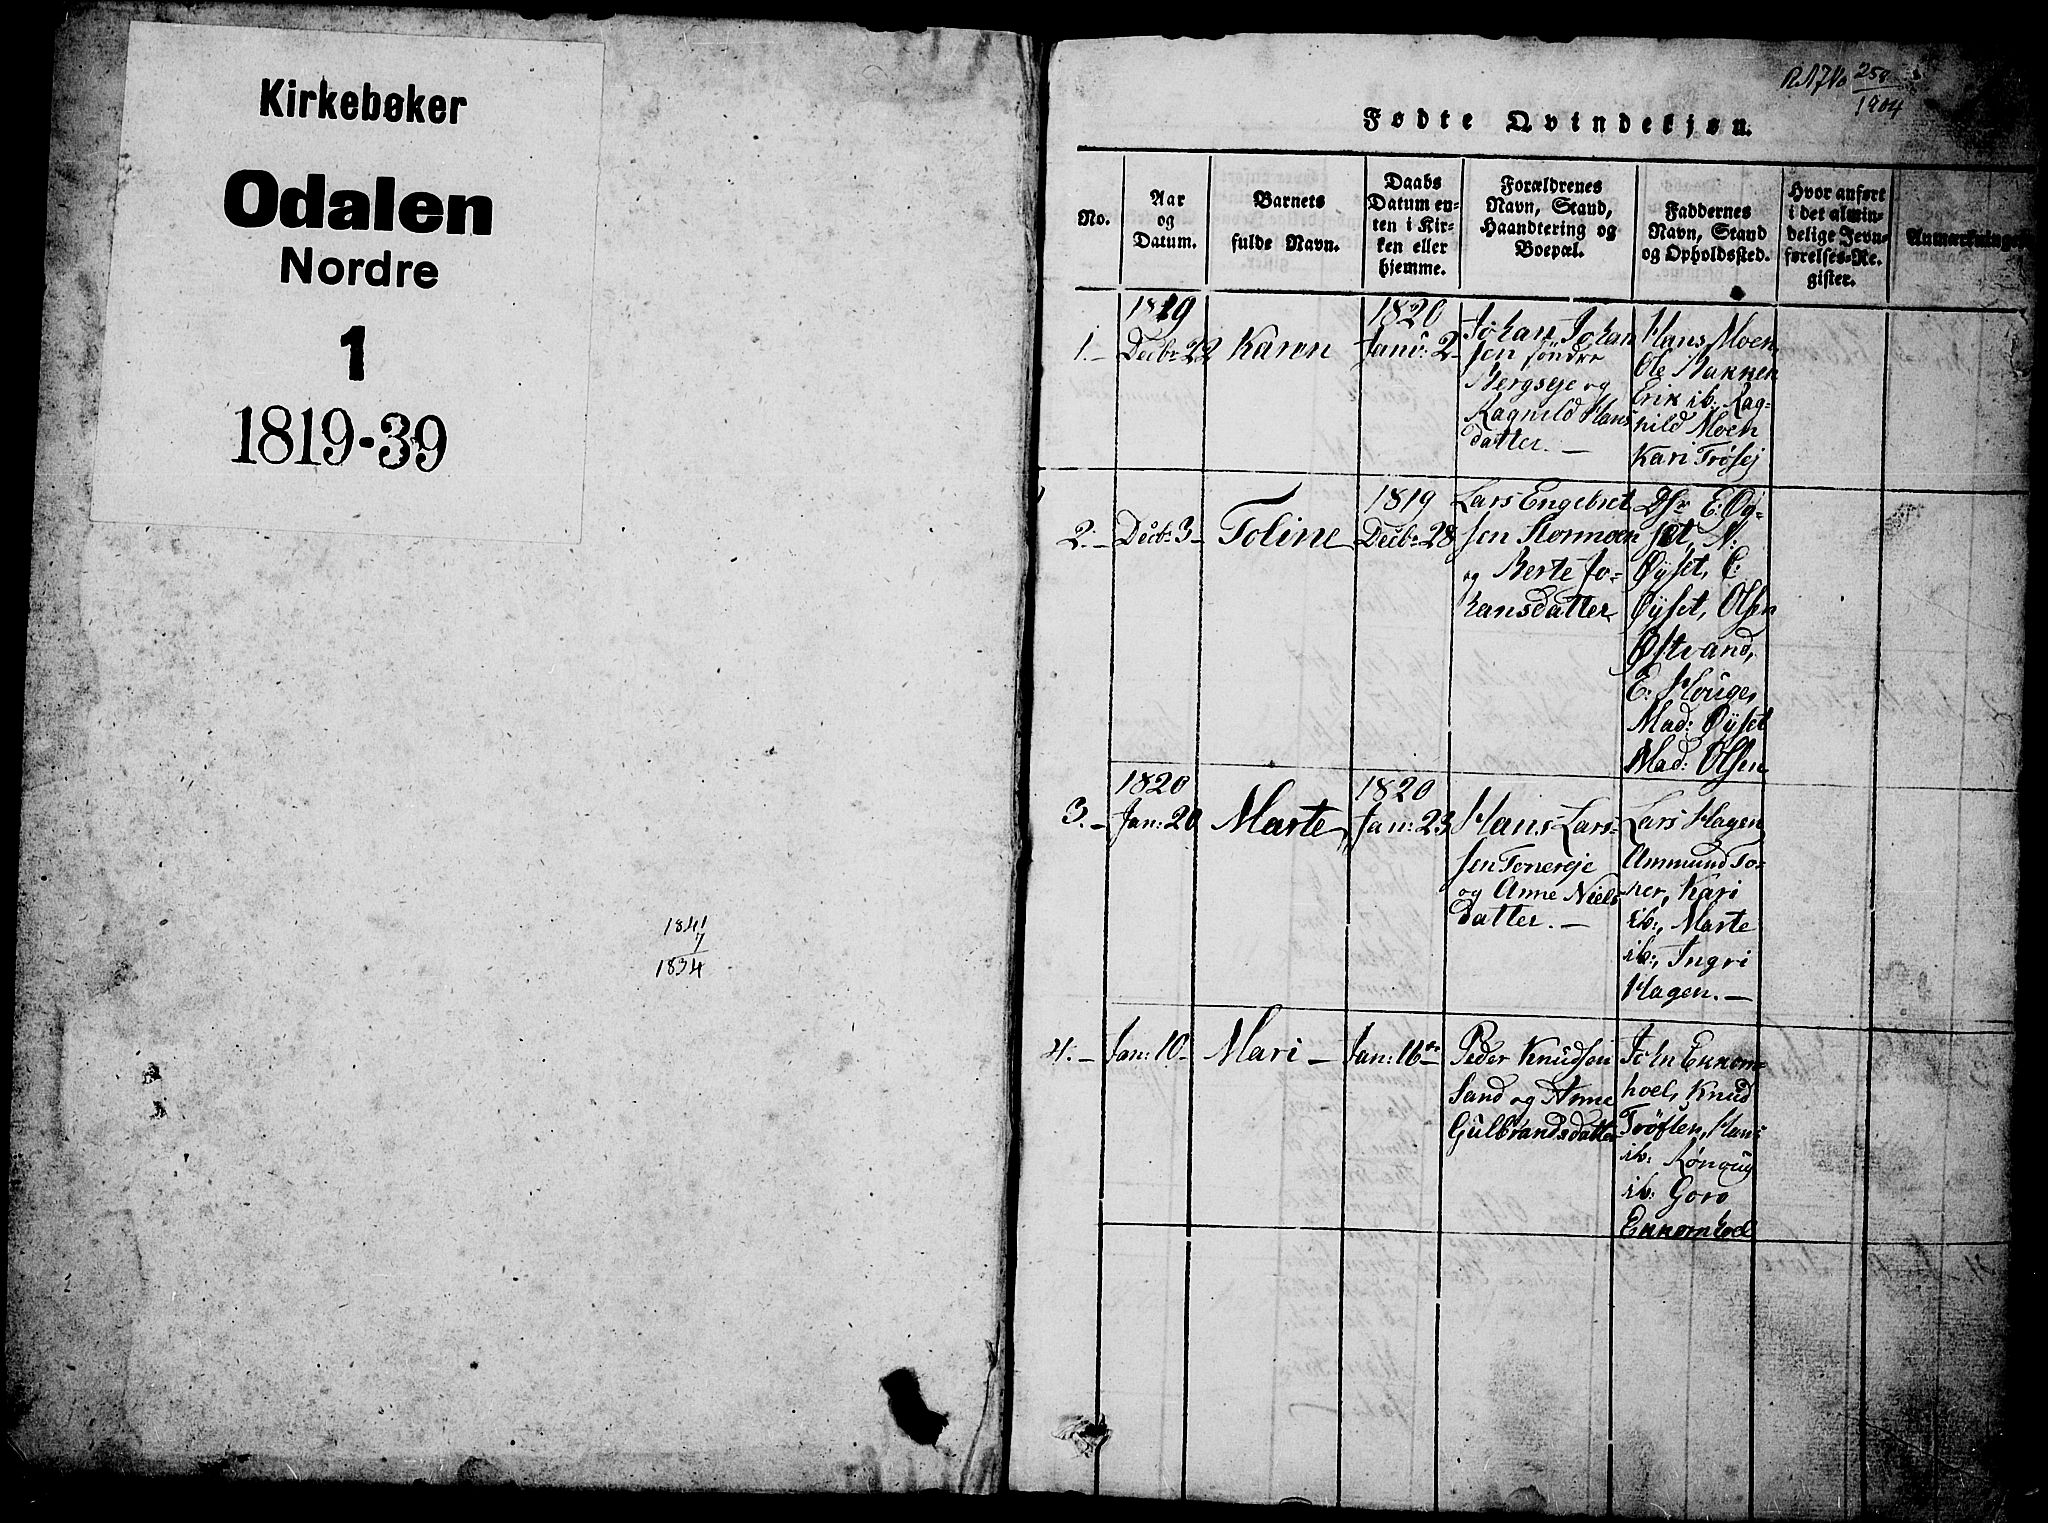 Kirkebøker
Odalen
Nordre
1
1819-39
1841
7
1834
R.A.J.No 258
1904
Fødte Qvindekjøn.
No.
Aar
og
Datum.
Barnets
fulde Navn.
Daabs
Datum en-
ten i Kir-
ken eller
hjemme.
Forældrenes
Navn, Stand,
Haandtering og
Boepæl.
Faddernes
Navn, Stand
og Opholdssted.
Hvor anført
i det almin-
delige Jevn-
førelses-Re-
gister.
Anmærkninger
1819
1.- Decbr 22
Karen
1820
Janu: 2
Johan Johan
sen søndre
Bergseje og
Ragnild Hans
datter. -
Hans Moen,
Ole Bakken
Erik ib. Rag-
nild Moen
Kari Trøsej
2.- Decbr 3-
Toline
1819
Decbr 28
Lars Engebret
sen Stormoen
og Berte Jo-
hansdatter
Hr E: Øy-
set N:
Øyset, E:
Øyset, Olsen
Østvand,
E: Houge,
Mad: Øyset
Mad: Olsen
1820
3.- Jan: 20
Marte
1820
Jan: 23
Hans Lars-
sen Tonereje
og Anne Niels
datter. -
Lars Hagen
Ammund To-
ner, Kari
ib:, Marte
ib:, Ingri
Hagen. -
4.- Jan: 10-
Mari -
Jan: 16de
Peder Knudsen
Sand og Anne
Gulbrandsdatter
John Ekkorn-
hoel, Knud
Trøften, Hans
ib: Rønnug
ib: Goro
Ekkornhoel